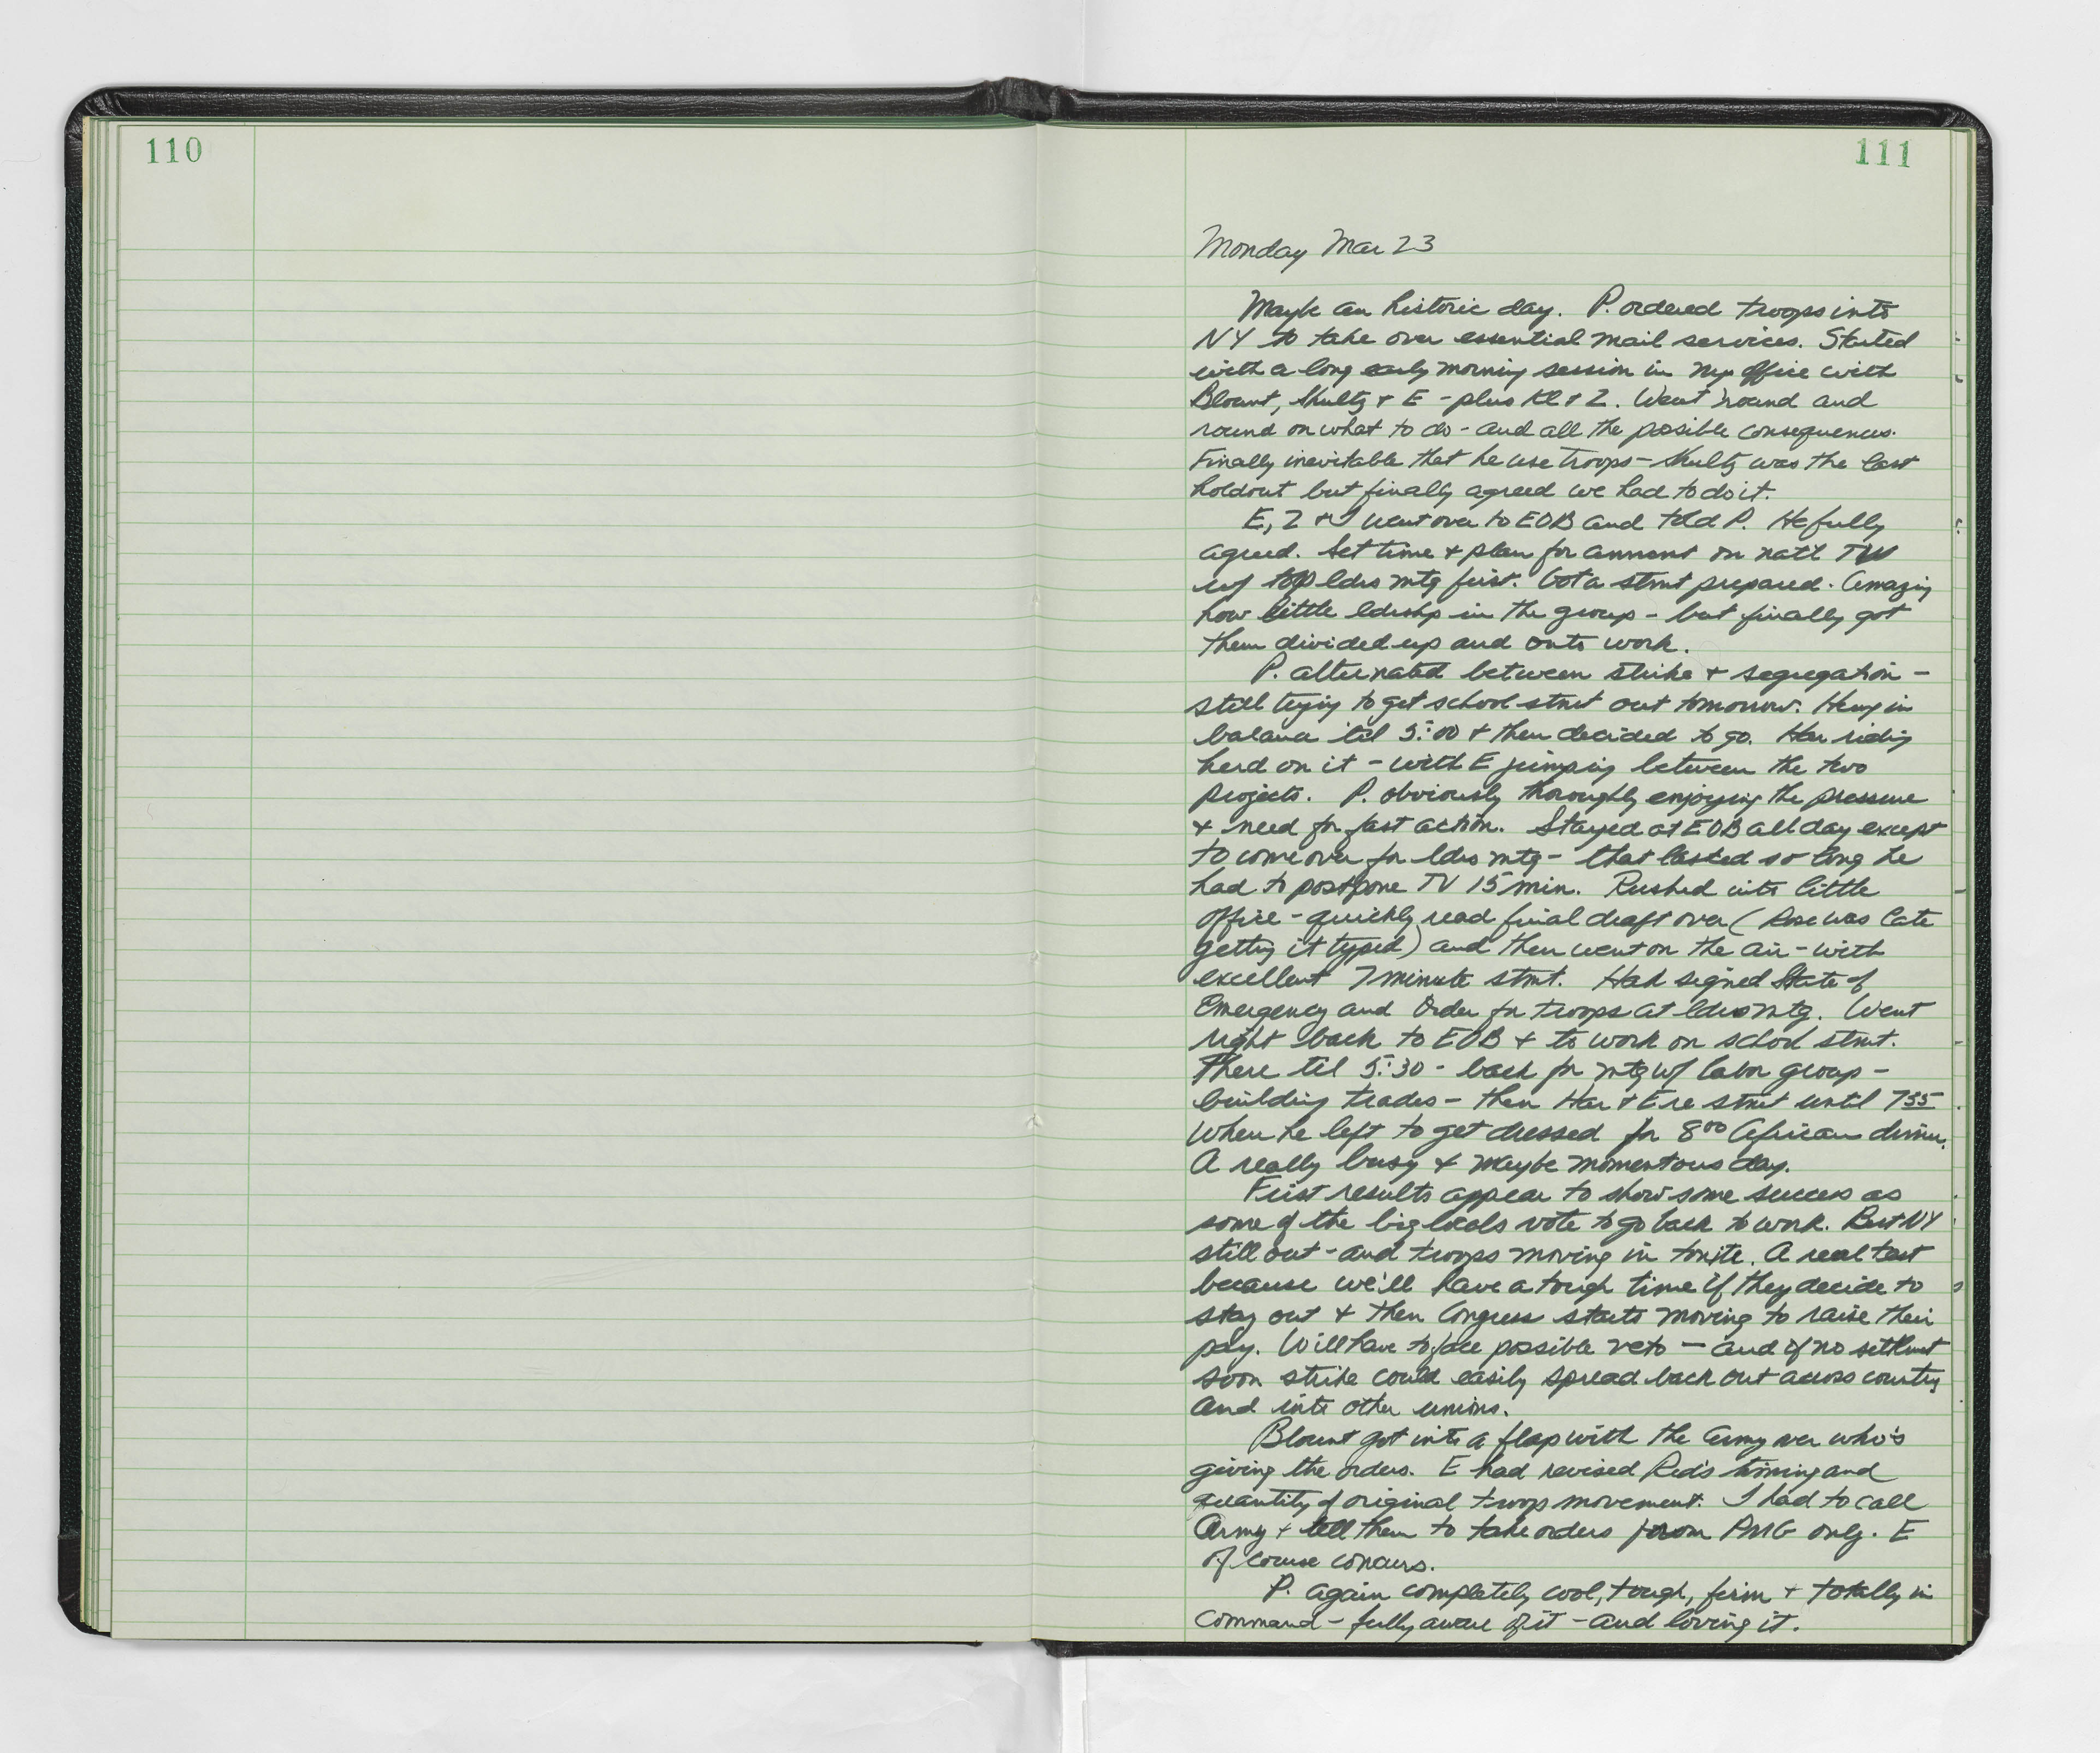 110
111
Monday Mar 23
Maybe an historic day. P. ordered troops into
NY to take over essential mail services. Started
with a long early morning session in my office with
Blount, Shultz & E - plus Kl & Z. Went 'round and
round on what to do - and all the possible consequences.
Finally inevitable that he use troops - Shultz was the last
holdout but finally agreed we had to do it.
E, Z & I went over to EOB and told P. He fully
agreed. Set time & plan for anncmt on nat'l TV
w/ top ldrs mtg first. Got a stmt prepared. Amazing
how little ldrshp in the group - but finally got
them divided up and onto work.
P. alternated between strike & segregation -
still trying to get school stmt out tomorrow. Hung in
balance 'til 5:00 & then decided to go. Har riding
herd on it - with E jumping between the two
projects. P. obviously thoroughly enjoying the pressure
& need for fast action. Stayed at EOB all day except
to come over for ldrs mtg - that lasted so long he
had to postpone TV 15 min. Rushed into little
office - quickly read final draft over (Rose was late
getting it typed) and then went on the air - with
excellent 7 minute stmt. Had signed State of
Emergency and Order for troops at ldrs mtg. Went
right back to EOB & to work on school stmt.
There til 5:30 - back for mtg w/ labor group -
building trades - then Har & E re stmt until 7 35
when he left to get dressed for 8 00 African dinner.
A really busy & maybe momentous day.
First results appear to show some success as
some of the big locals vote to go back to work. But NY
still out - and troops moving in tonite. A real test
because we'll have a tough time if they decide to
stay out & then Congress starts moving to raise their
pay. Will have to face possible veto - and if no settlmt
soon strike could easily spread back out across country
and into other unions.
Blount got into a flap with the Army over who's
giving the orders. E had revised Red's timing and
quantity of original troop movement. I had to call
Army & tell them to take orders from PMG only. E
of course concurs.
P. again completely cool, tough, firm & totally in
command - fully aware of it - and loving it.